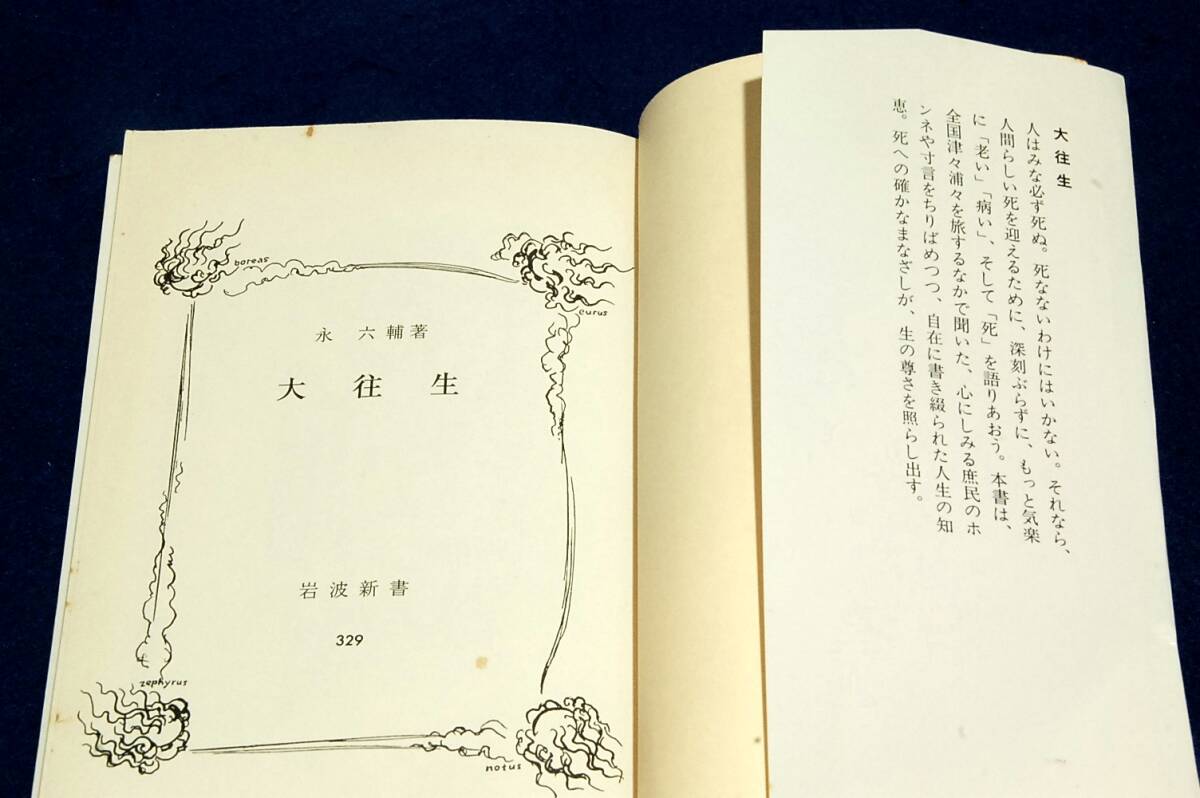 大往生
人はみな必ず死ぬ。死なないわけにはいかない。それなら、
人間らしい死を迎えるために、深刻ぶらずに、もっと気楽
に「老い」「病い」、そして「死」を語りあおう。本書は、
全国津々浦々を旅するなかで聞いた、心にしみる庶民のホ
ンネや寸言をちりばめつつ、自在に書き綴られた人生の知
恵。死への確かなまなざしが、生の尊さを照らし出す。
boreas
eurus
永六輔著
大往生
岩波新書
329
zephyrus
notus